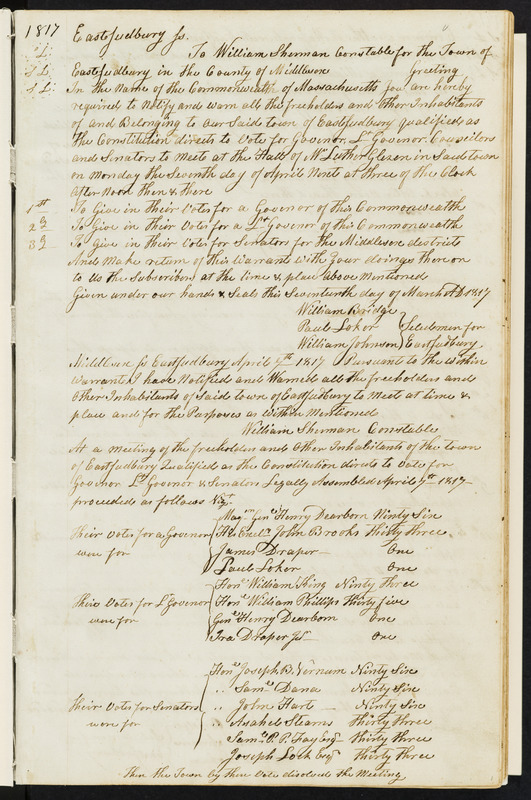 1817 Eastsudbury Ss.
To William Sherman Constable for the Town of
Eastsudbury in the County of Middlesex Greeting
In the Name of the Commonwealth of Massachusetts you are hereby
required to Notify and warn all the freeholders and other Inhabitants
of and Belonging to our Said town of Eastsudbury qualified as
the Constitution directs to Vote for Govenor, Lt Govenor Councilers
and Senators to Meete at the Hall of Mr Luther Glezen in Said town
on Monday the Seventh day of April Next at three of the Clock
After Noon then & there
1st To Give in their Votes for a Govenor of this Commonwealth
2d To Give in their Votes for a Lt Govenor of this Commonwealth
3d To Give in their Votes for Senators for the Middlesex districts
And Make return of this Warrant with your doings there on
to Us the Subscribers at the time & place above Mentioned
Given under our hands & Seals this Seventeenth day of March AD 1817
William Bridge
Paul Loker Selectmen for
William Johnson Eastsudbury
Middlesex Ss Eastsudbury April 7th 1817 Pursuant to the Within
Warrant I have Notified and Warned all the freeholders and
Other Inhabitants of Said town of Eastsudbury to Meet at time &
place and for the Purposes as Within Mentioned
William Sherman Constable
At a Meeting of the freeholders and Other Inhabitants of the town
of Eastsudbury Qualified as the Constitution directs to Vote for
Govenor Lt Govenor & Senators Legally Assembled April 7th 1817
proceeded as follows Viz
Their Votes for a Govenor were for
Majr Genl Henry Dearborn Ninty Six
His Excely John Brooks thirty three
James Draper One
Paul Loker One
Their Votes for Lt Govenor were for
Honl William King Ninty three
Honl William Phillips thirty five
Genl Henry Dearborn One
Ira Draper Jr One
Their Votes for Senators were for
Honl Joseph B. Vernum Ninty Six
" Saml Dana Ninty Six
" John Hart Ninty Six
" Asahel Stearns thirty three
Saml P. P. Fay Esqr thirty three
Joseph Lock Esqr thirty three
then the Town by their Vote disolved the Meeting